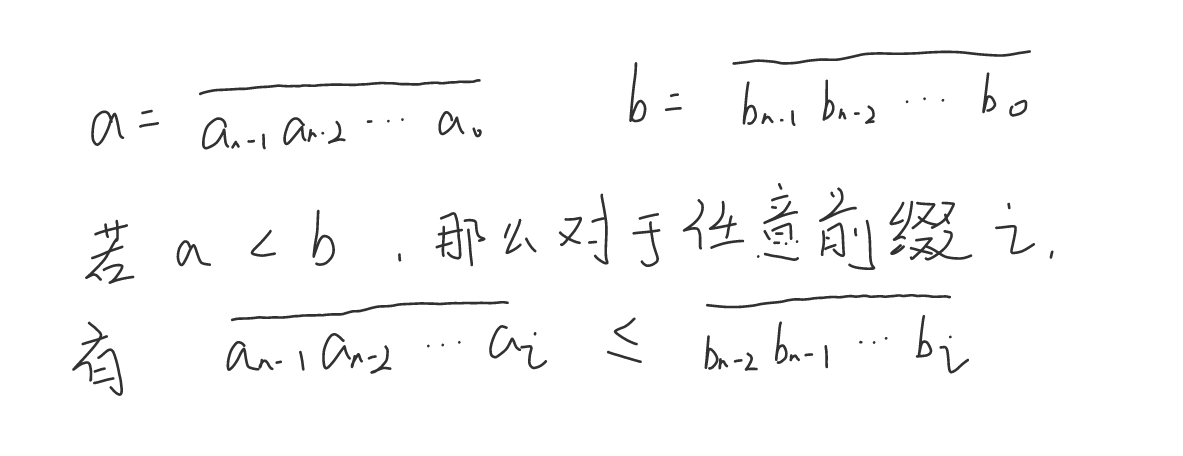 a = \overline{a_{n-1} a_{n-2} ⋯ a_0}    b = \overline{b_{n-1} b_{n-2} ⋯ b_0}
若 a < b , 那么对于任意前缀 i,
有 \overline{a_{n-1} a_{n-2} ⋯ a_i} ≤ \overline{b_{n-2} b_{n-1} ⋯ b_i}